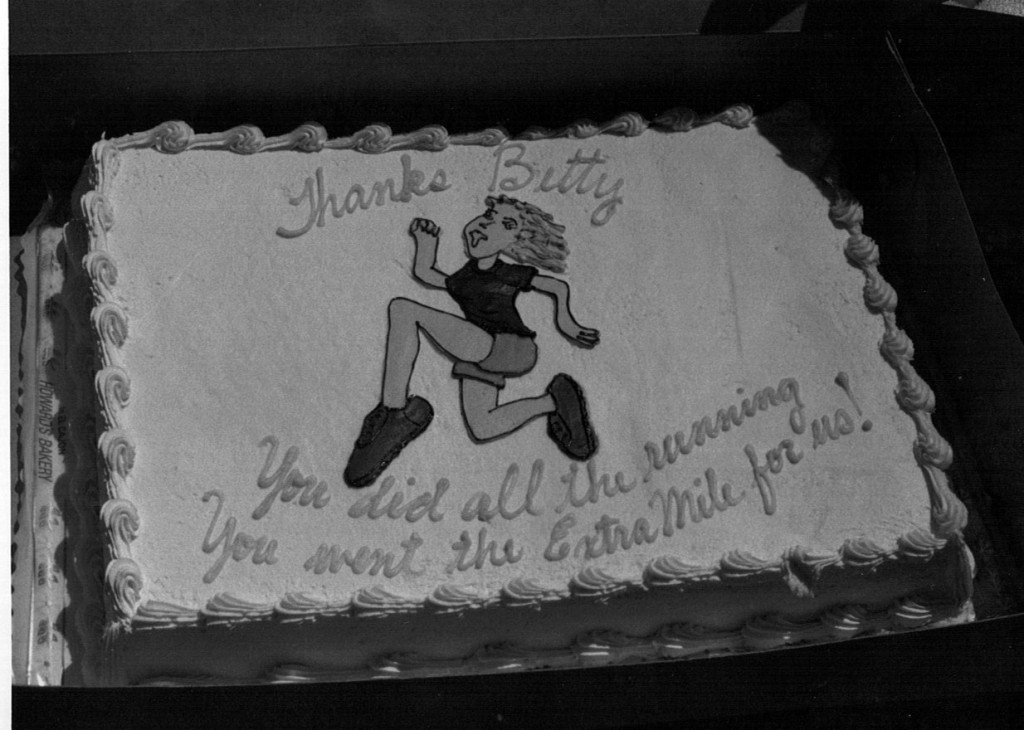 Thanks Betty
You did all the running
You went the Extra Mile for us!
HOWARDS BAKERY